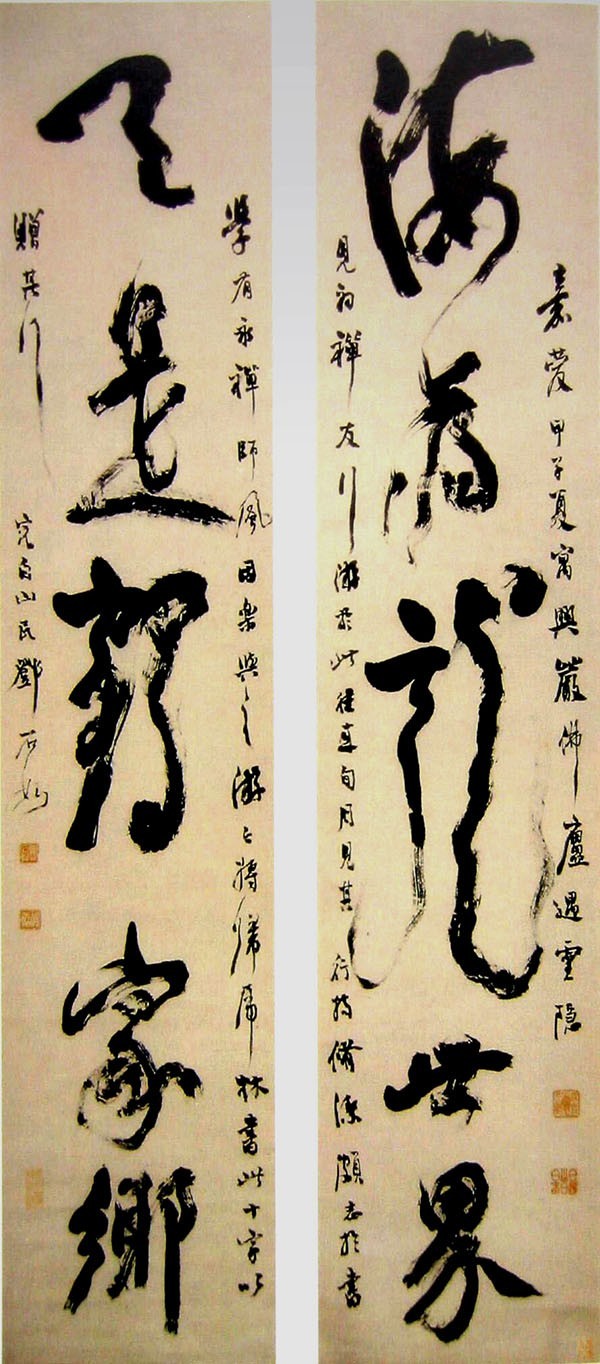 嘉慶甲子夏寓興嚴佛廬遇靈隐
海為龍世界
見初禪友行游於此旬月見其行持脩潔頗志於書
學有永禪師風因樂與之游將歸虎林書此十字以
天是鶴家鄉
贈其行
完白山民鄧石如